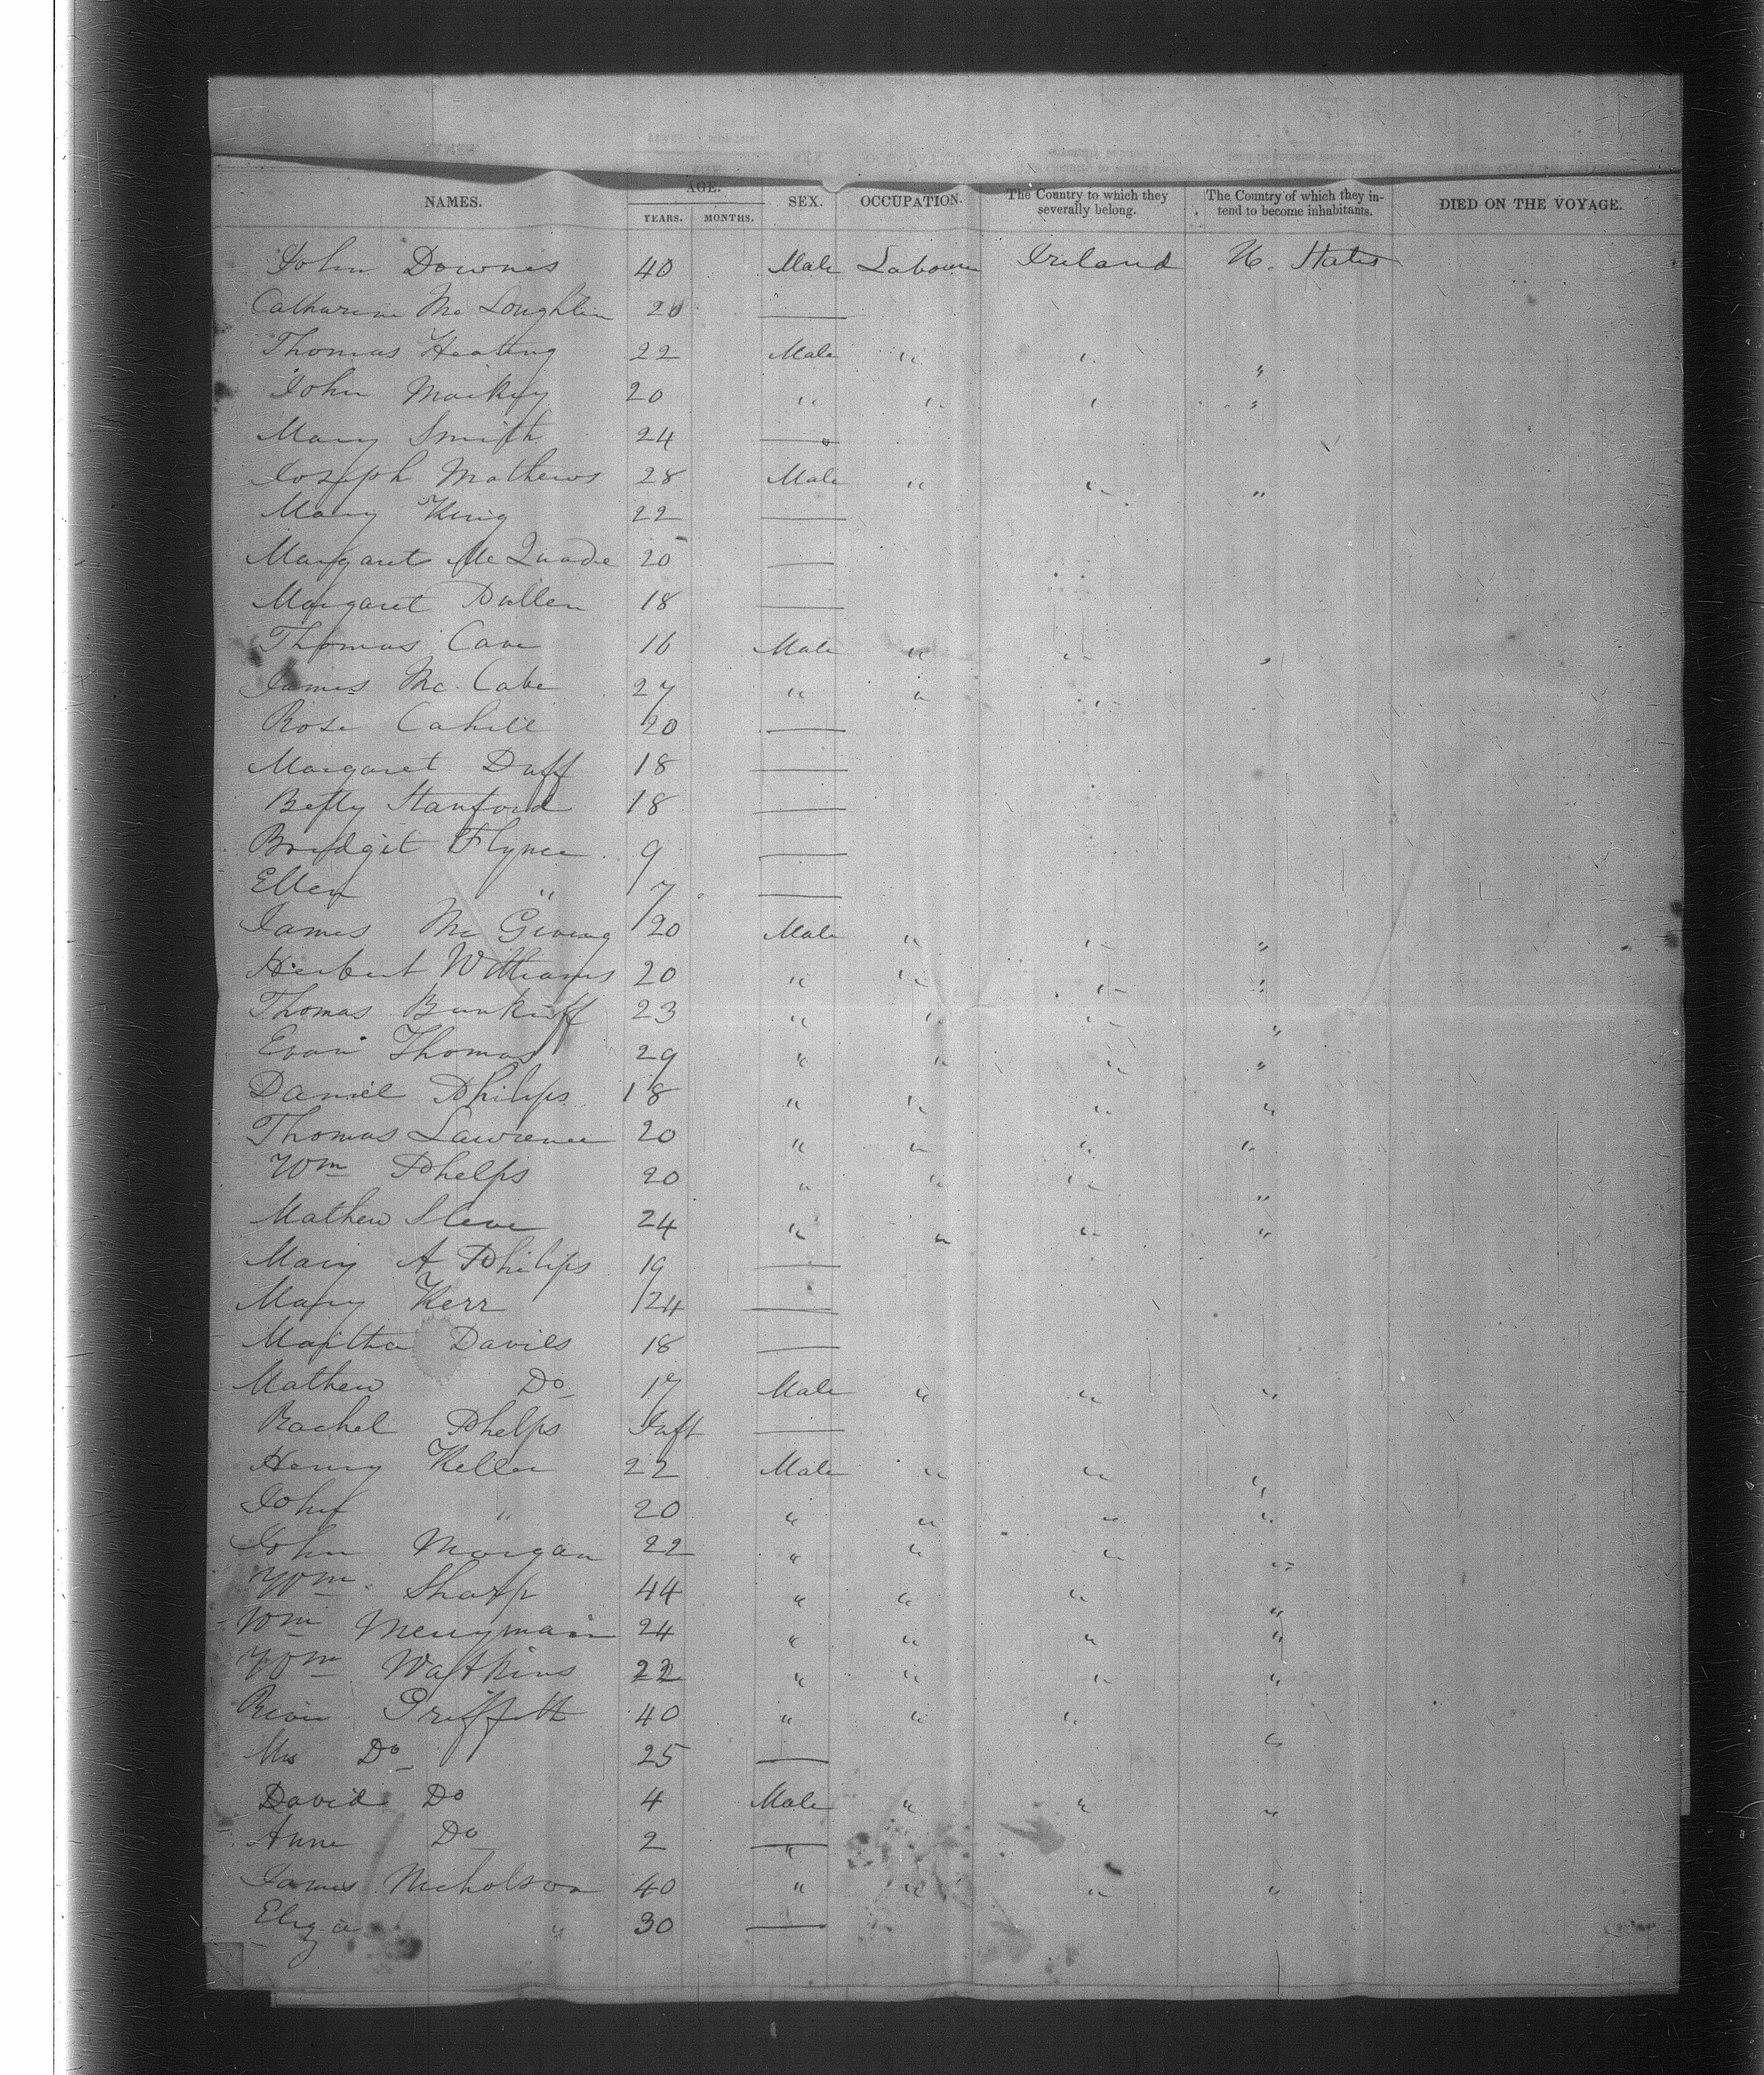 NAMES. AGE. YEARS. MONTHS. SEX. OCCUPATION. The Country to which they severally belong. The Country of which they intend to become inhabitants. DIED ON THE VOYAGE.
John Downes 40 Male Labourer Ireland U. States
Catharine Mc Loughlin 20 —
Thomas Keating 22 Male " " "
John Mackey 20 " " " "
Mary Smith 24 —
Joseph Mathews 28 Male " " "
Mary King 22 —
Margaret Mc Quade 20 —
Margaret Pullen 18 —
Thomas Cave 16 Male " " "
James Mc Cabe 27 " " "
Rose Cahill 20 —
Margaret Duff 18 —
Betty Stanford 18 —
Bridget Flynn 9 —
Ellen " 7 —
James Mc 20 Male " " "
Herbert Williams 20 " " " "
Thomas 23 " " " "
Evan Thomas 29 " " " "
Daniel Philips 18 " " " "
Thomas Lawrence 20 " " " "
Wm Phelps 20 " " " "
Mathew 24 " " " "
Mary A Philips 19 —
Mary Kerr 24 —
Martha Davies 18 —
Mathew Do 17 Male " " "
Rachel Phelps Inft —
Henry Keller 22 Male " " "
John " 20 " " " "
John Morgan 22 " " " "
Wm. Sharp 44 " " " "
Wm Merryman 24 " " " "
Wm Watkins 22 " " " "
Griffith 40 " " " "
Mrs Do 25 —
David Do 4 Male " " "
Anne Do 2 — "
James Nicholson 40 " " " "
Eliza " 30 —